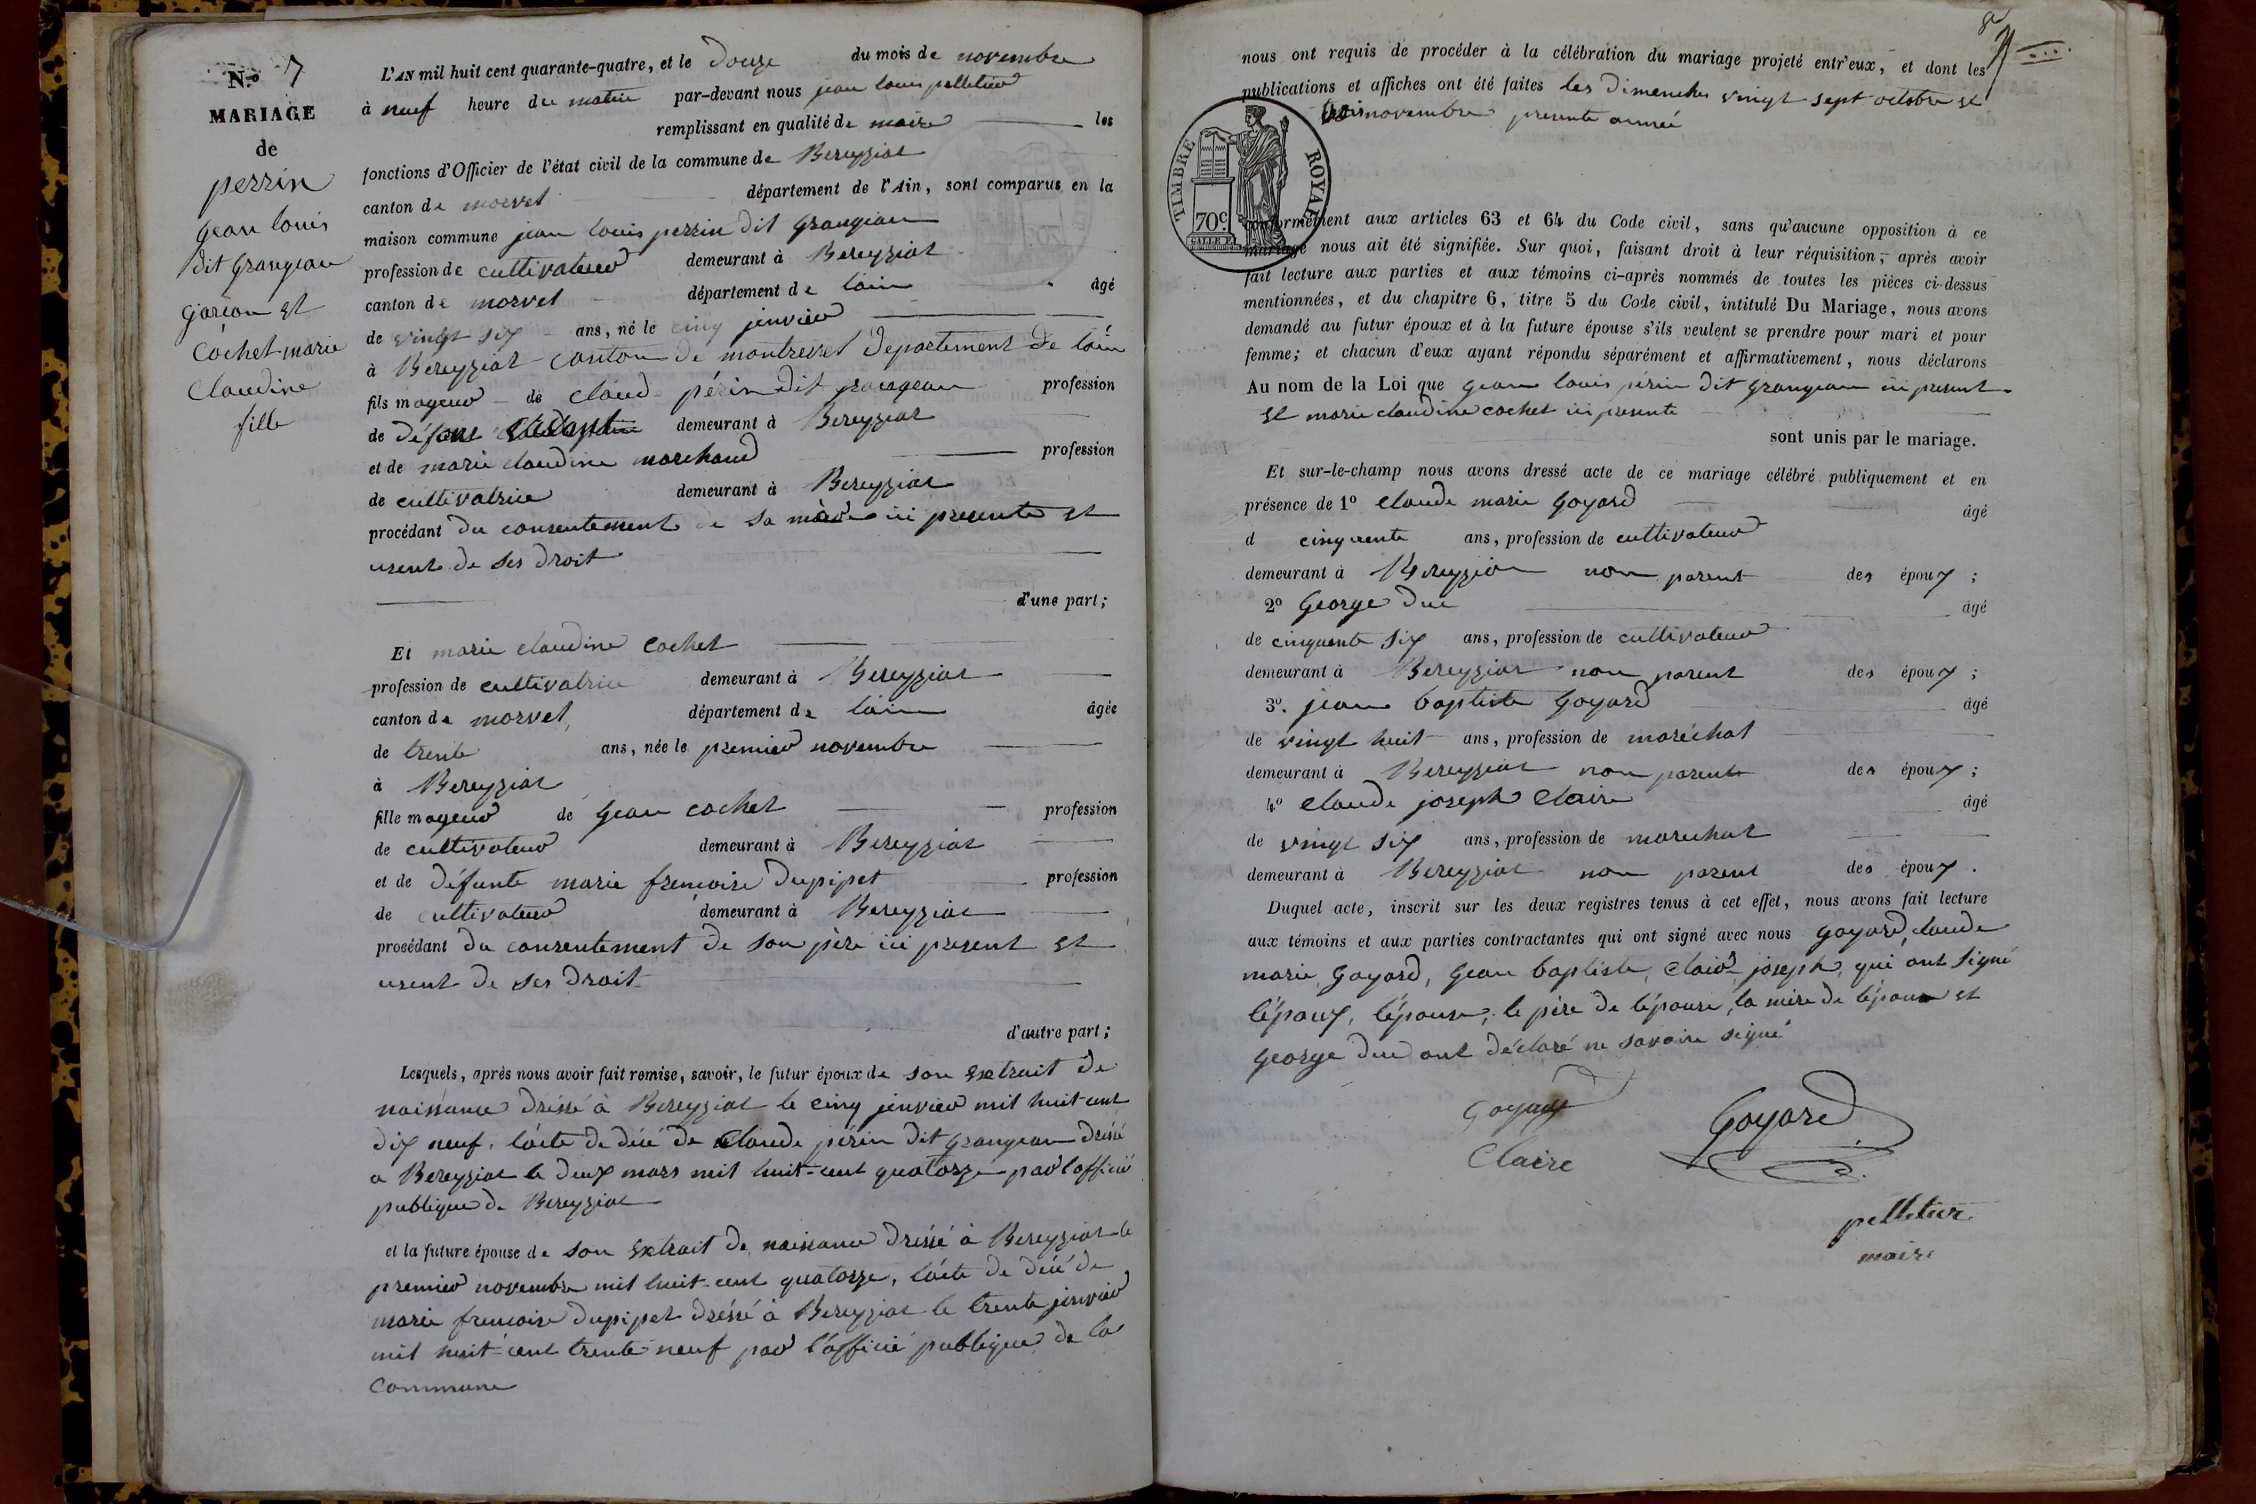 N.º 7
MARIAGE
de
perrin
gean louis
dit grangean
garcon et
Cochet marie
Claudine
fille
L'AN mil huit cent quarante-quatre, et le douze du mois de novembre
à neuf heure du matin par-devant nous jean louis pelletier
remplissant en qualité de maire les
fonctions d'Officier de l'état civil de la commune de Bereyziat
canton de département de l'Ain, sont comparus en la
maison commune jean louis perrin dit grangean
profession de cultivateur demeurant à Bereyziat
canton de morvel département de lain âgé
de vingt six ans, né le cinq jenvier
à Bereyziat canton de montrevel departement de lain
fils mageur de claud périn dit grangean profession
de défunt demeurant à Bereyziat
et de marie claudine marchand profession
de cultivatrice demeurant à Bereyziat
procédant du consentement de sa mère ici presente et
usent de ses droit
d'une part;
Et marie claudine cochet
profession de cultivatrice demeurant à Bereyziat
canton de morvel département de lain âgée
de trente ans, née le premier novembre
à Bereyziat
fille mageur de gean cochet profession
de cultivateur demeurant à Bereyziat
et de défunte marie frencoise dupipet profession
de cultivateur demeurant à Bereyziat
procédant du consentement de son père ici present et
usent de ses droit
d'autre part;
Lesquels, après nous avoir fait remise, savoir, le futur époux de son extrait de
naissance dréssé à Bereyziat le cinq jenvier mil huit cent
dix neuf, lácte de décé de Claude périn dit grangean dréssé
a Bereyziat le deux mars mil huit-cent quatorze par l'officié
publique de Bereyziat
et la future épouse de son extrait de naissance dréssé à Bereyziat le
premier novembre mil huit-cent quatorze, lácte de décé de
marie frencoise dupipet dréssé à Bereyziat le trente jenvier
mil huit-cent trente neuf par l'officié publique de la
commune
nous ont requis de procéder à la célébration du mariage projeté entr'eux, et dont les
publications et affiches ont été faites les dimenches vingt sept octobre et
trois novembre presente année
TIMBRE ROYAL
70c
conformément aux articles 63 et 64 du Code civil, sans qu'aucune opposition à ce
mariage nous ait été signifiée. Sur quoi, faisant droit à leur réquisition, après avoir
fait lecture aux parties et aux témoins ci-après nommés de toutes les pièces ci-dessus
mentionnées, et du chapitre 6, titre 5 du Code civil, intitulé Du Mariage, nous avons
demandé au futur époux et à la future épouse s'ils veulent se prendre pour mari et pour
femme; et chacun d'eux ayant répondu séparément et affirmativement, nous déclarons
Au nom de la Loi que gean louis périn dit grangean ici present
et marie claudine cochet ici presente
sont unis par le mariage.
Et sur-le-champ nous avons dressé acte de ce mariage célébré publiquement et en
présence de 1º claude marie goyard âgé
d cinquente ans, profession de cultivateur
demeurant à Bereyziat non parent des époux;
2º George duc âgé
de cinquente six ans, profession de cultivateur
demeurant à Bereyziat non parent des époux;
3º. jean baptiste goyard âgé
de vingt huit ans, profession de maréchal
demeurant à Bereyziat non parent des époux;
4º claude joseph claire âgé
de vingt six ans, profession de marechal
demeurant à Bereyziat non parent des époux.
Duquel acte, inscrit sur les deux registres tenus à cet effet, nous avons fait lecture
aux témoins et aux parties contractantes qui ont signé avec nous goyard, claude
marie, goyard, gean baptiste, clair joseph, qui ont signé
lépoux, lépouse, le père de lépouse, la mère de lépoux et
george duc ont déclaré ne savoire signé
Goyard
Goyard
Claire
pelletier
maire